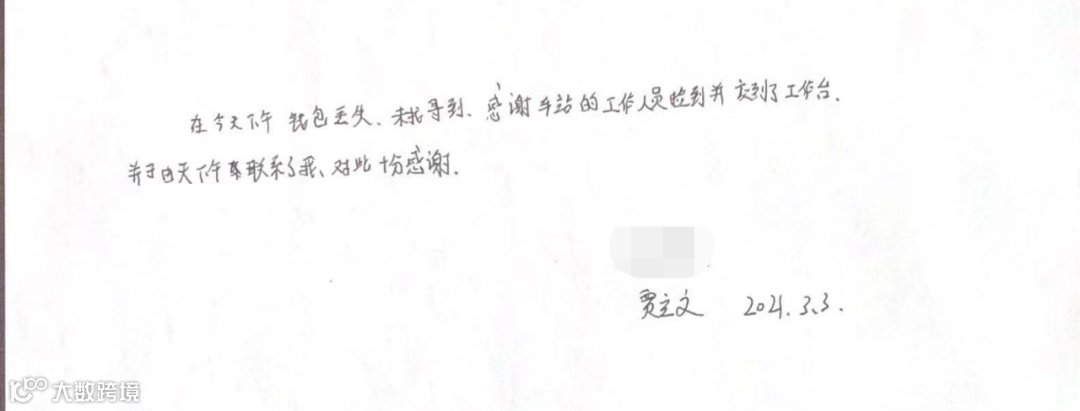 在今天下午 钱包丢失、未找寻到、感谢车站的工作人员捡到并交到了工作台.
并于当天下午联系了我、对此十分感谢.
贾立文 2021.3.3.
大数跨境